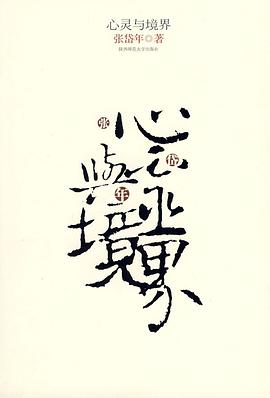 心灵与境界
张岱年◎著
陕西师范大学出版社
心灵
與境界
张
岱
年